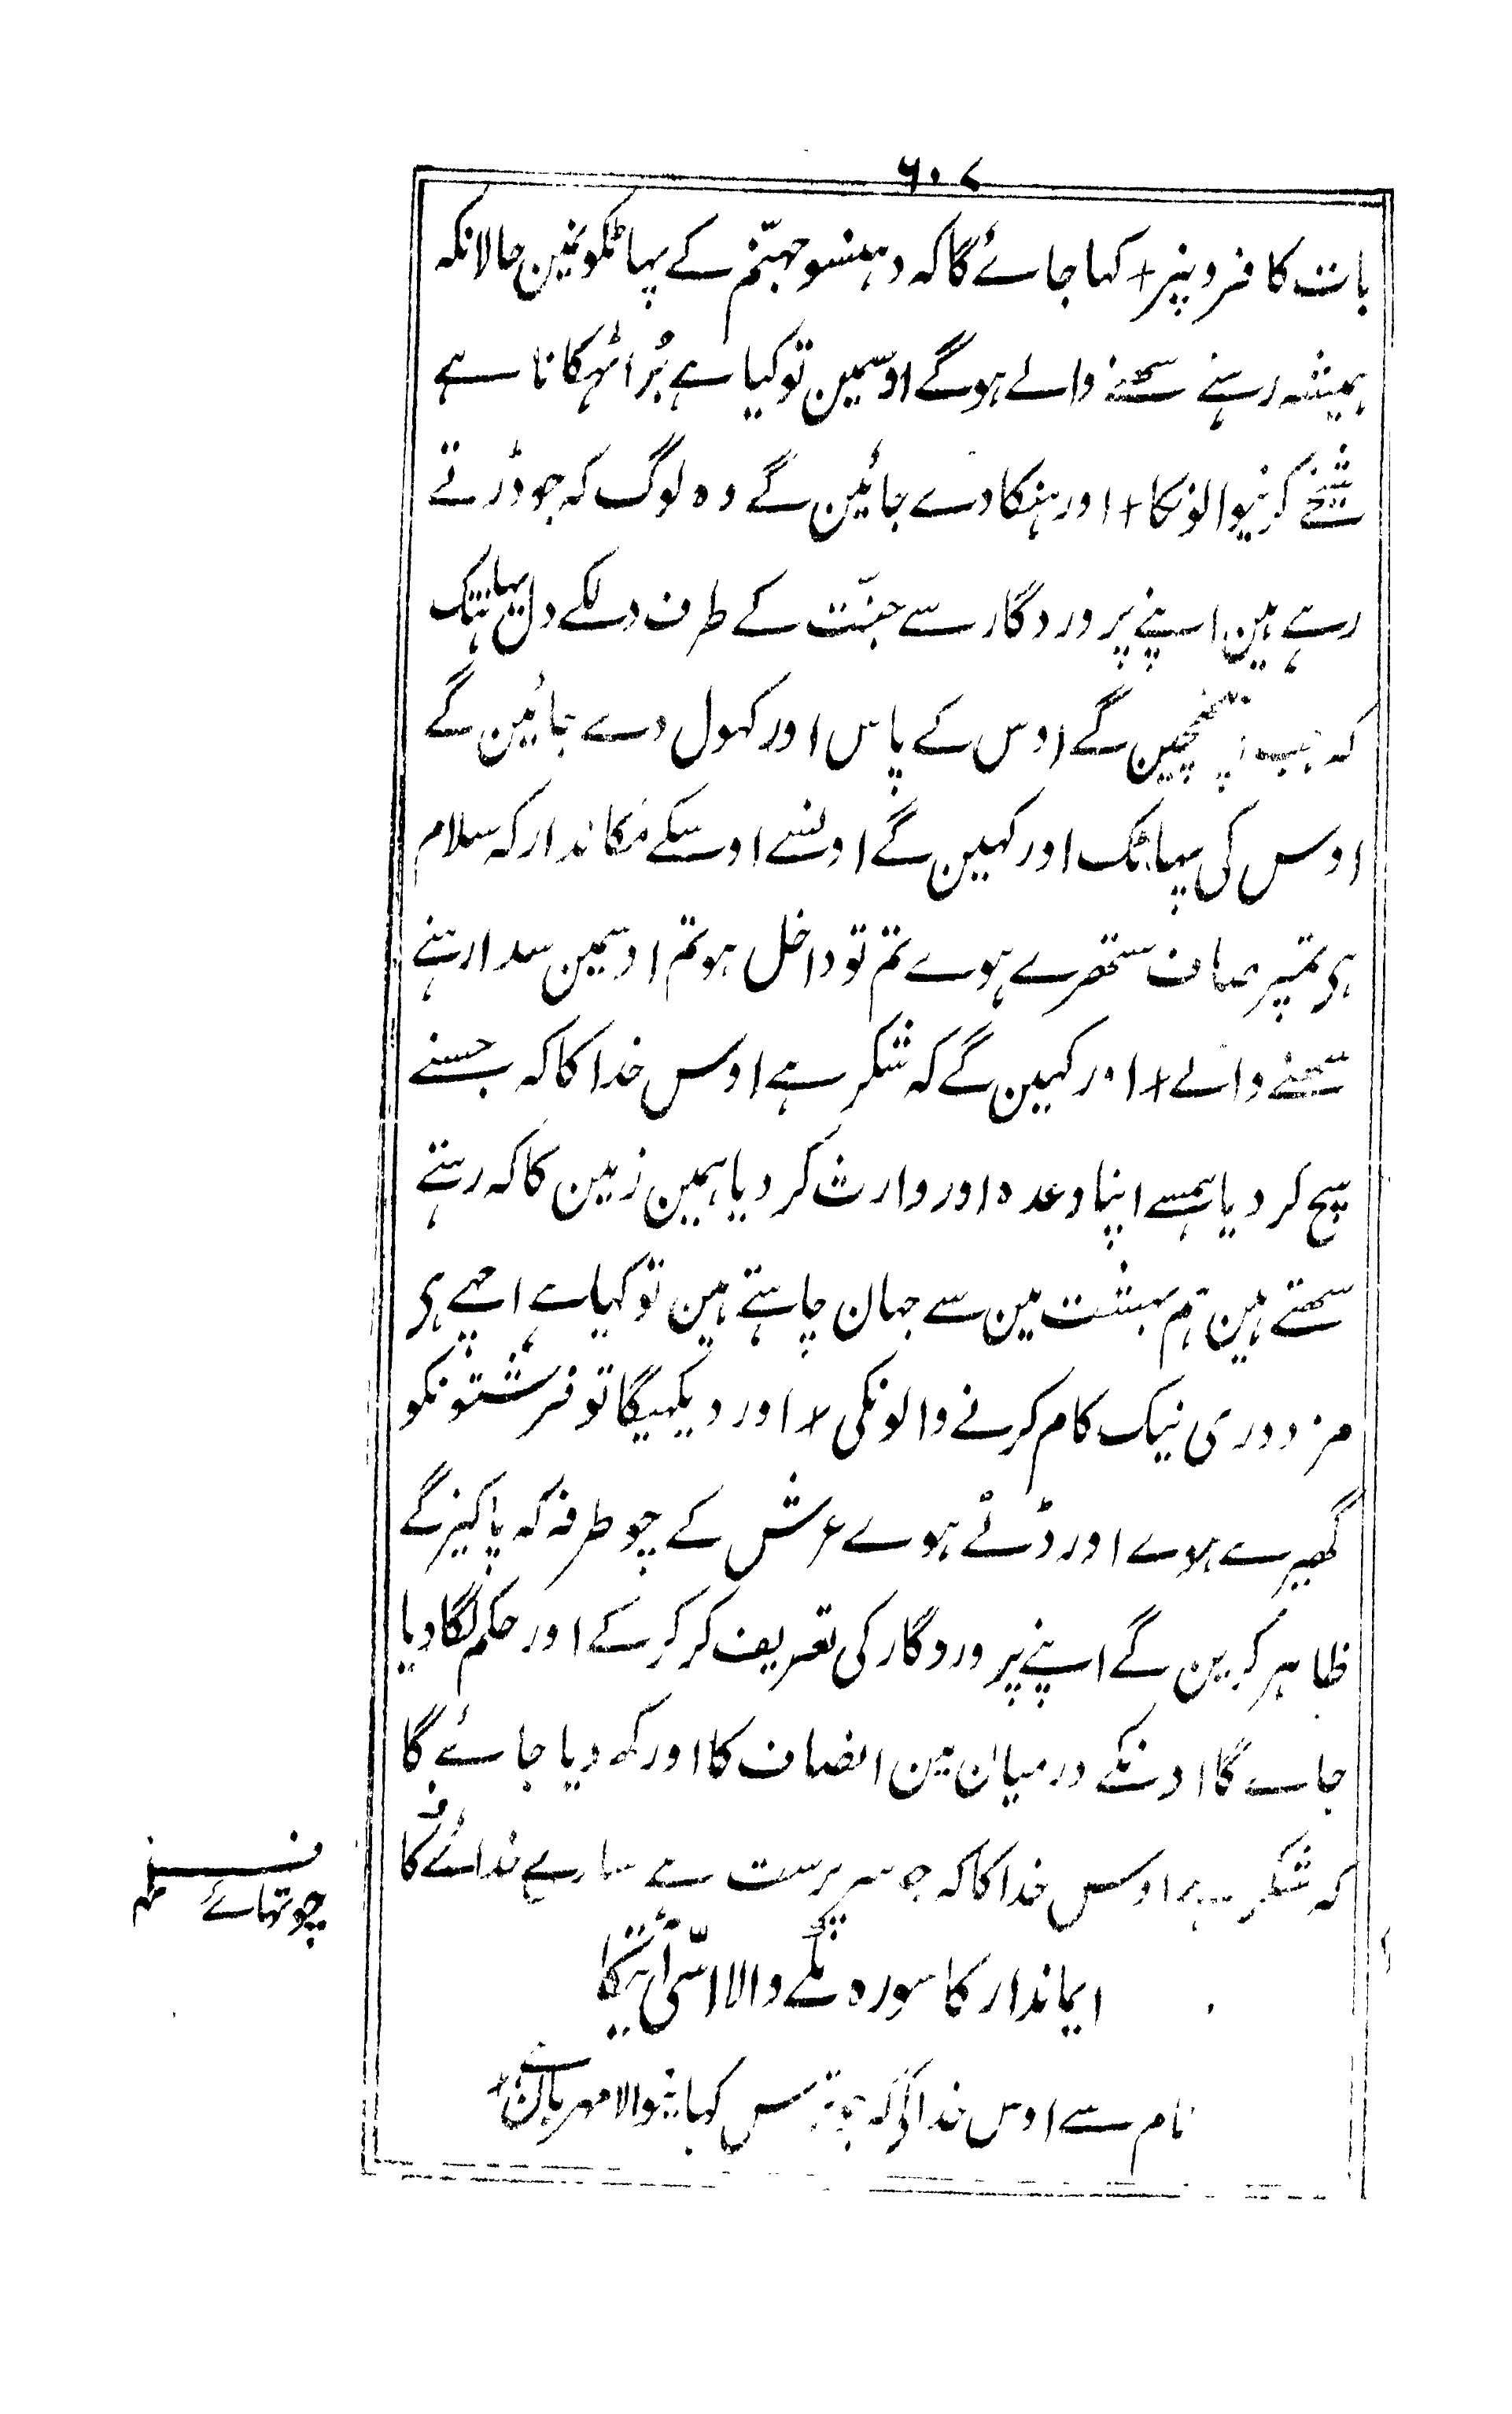 ۶۰۷
بات کافرونپر + کہا جائے گا کہ دہنسو جہنّم کے پہاٹکونمین حالانکہ
ہمیشہ رہنے سہنے والے ہوگے اوسمین تو کیا ہے بُرا ٹہکانا ہے
شیخے کرنیوالونکا + اور ہنکا دے جائین گے وہ لوگ کہ جو ڈرتے
رہے ہین اپنے پروردگار سے جنّت کے طرف دلکے دل یہانتک
کہ جب پہنچین گے اوس کے پاس اور کہول دے جائین گے
اوس کی پہاٹک اور کہین گے اونسے اوسکے مکاندار کہ سلام
ہی تمپر صاف ستھرے ہوے تم تو داخل ہو تم اوسمین سدا رہنے
سہنے والے + اور کہین گے کہ شکر ہے اوس خدا کا کہ جسنے
سچ کر دیا ہمسے اپنا وعدہ اور وارث کر دیا ہمین زمین کا کہ رہتے
سہتے ہین ہم بہشت مین سے جہان چاہتے ہین تو کیا ہے اچہے ہی
مزدوری نیک کام کرنے والونکی + اور دیکہیگا تو فرشتونکو
گھیرے ہوے اور ڈٹے ہوے عرش کے چوطرفہ کہ پاکیزگے
ظاہر کرین گے اپنے پروردگار کی تعریف کر کر کے اور حکم لگا دیا
جاے گا اونکے درمیان مین انصاف کا اور کہ دیا جائے گا
کہ شکر ہے اوس خدا کا کہ جو سرپرست ہے سارے خدائے کا
چوتہائے
ایماندار کا سورہ مکّے والا اسّی آیتکا
نام سے اوس خدا کے کہ جو ترس کہانیوالا مہربان ہے +